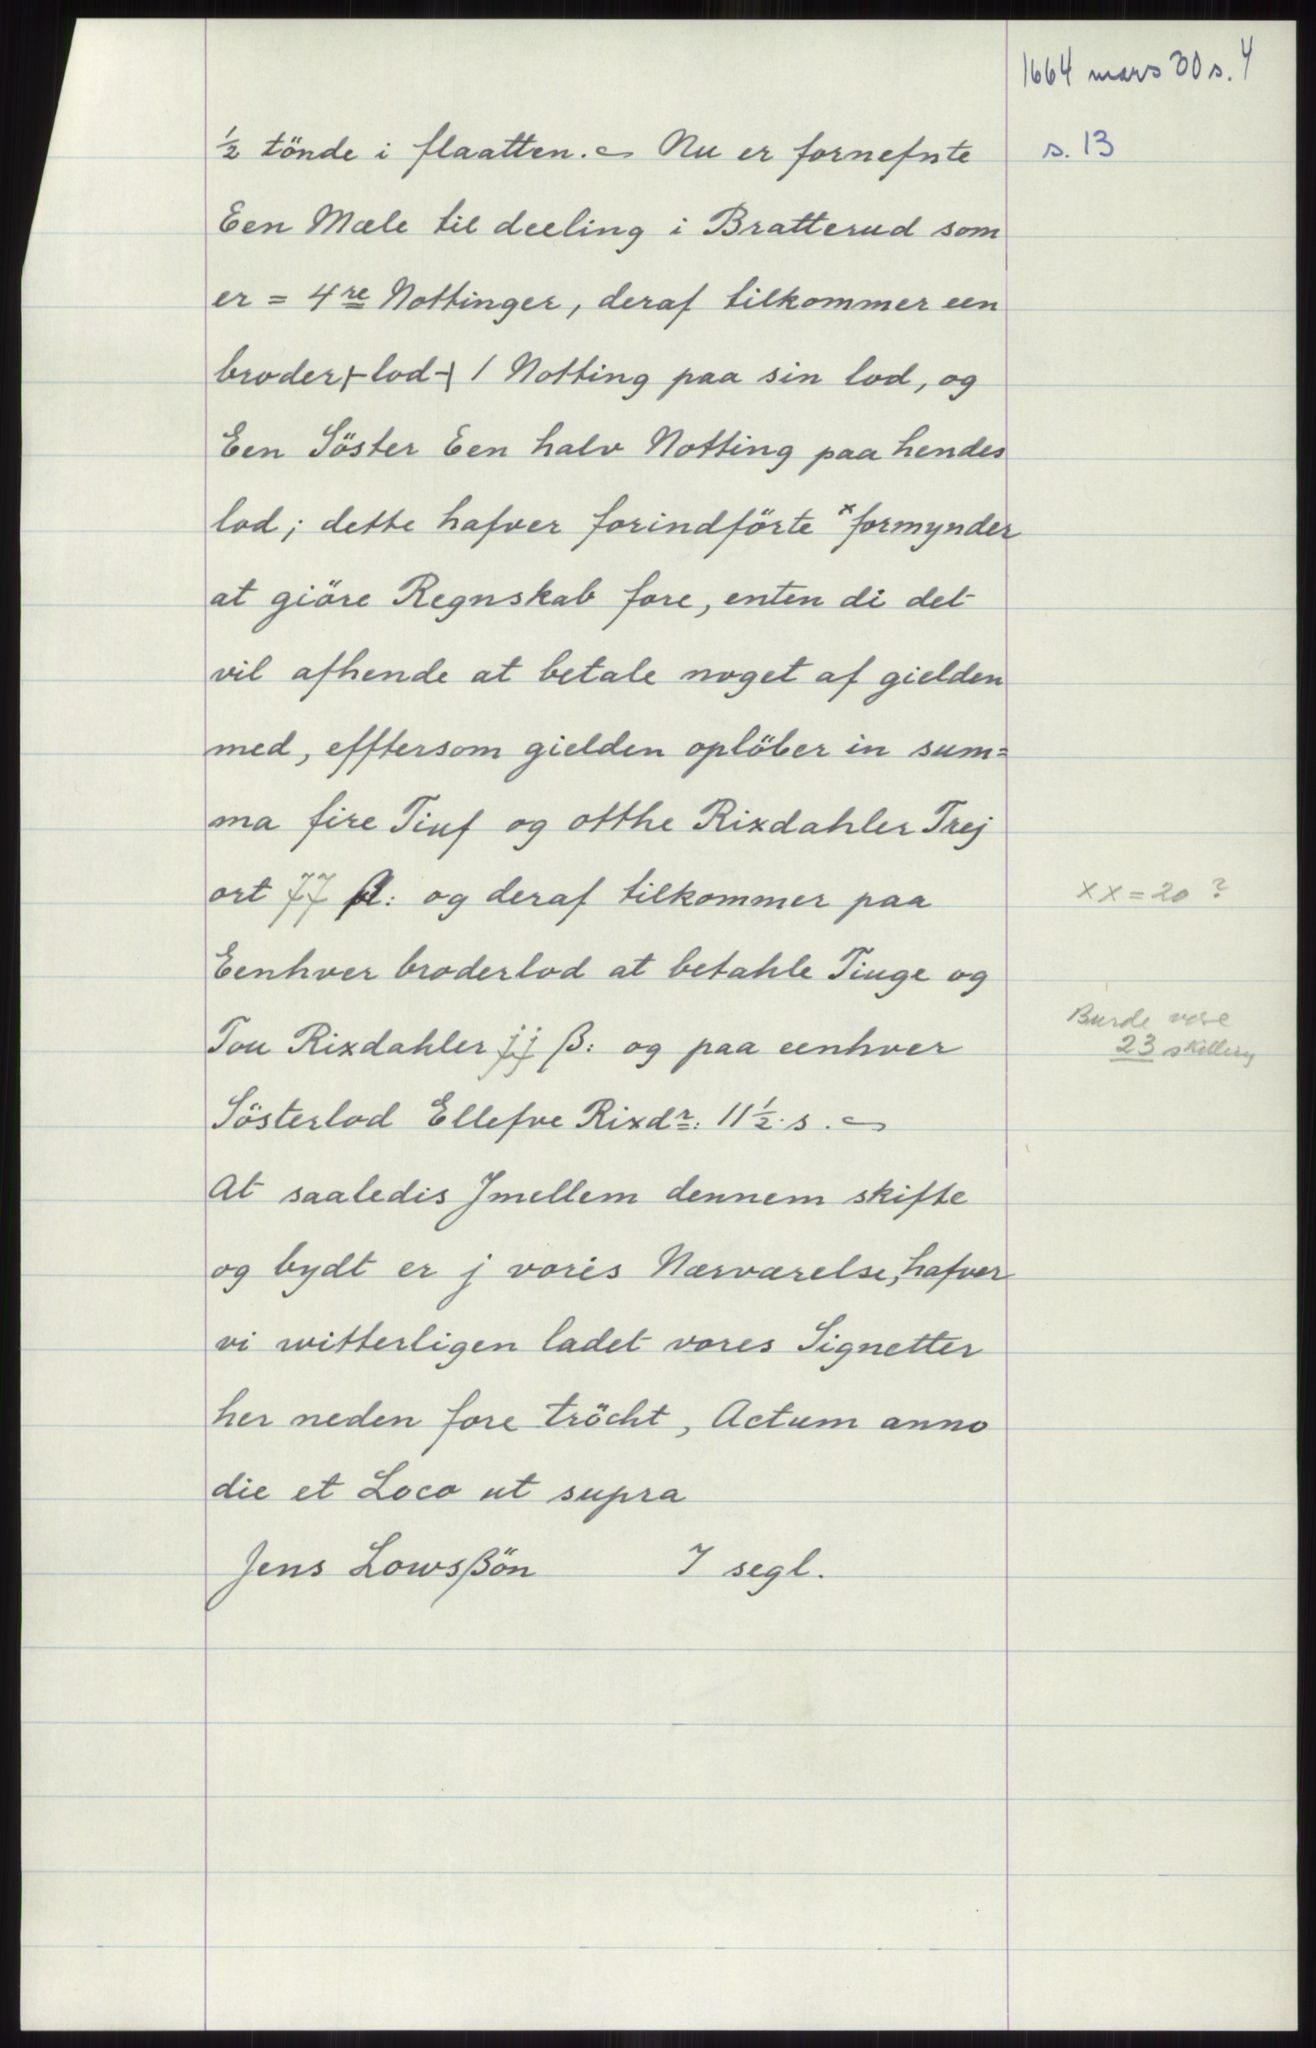 1664 mars 30 s. 4
s. 13
½ tönde i flaatten. Nu er fornefnte
Een Mæle til deeling i Bratterud som
er = 4re Nottinger, deraf tilkommer een
broder lod 1 Notting paa sin lod, og
Een Söster Een halv Notting paa hendes
lod; dette hafver forindförte x formynder
at giöre Regnskab fore, enten di det
vil afhende at betale noget af gielden
med, efftersom gielden oplöber in sum=
ma fire Tiuf og otthe Rixdahler Trej
ort ß: og deraf tilkommer paa
xx = 20 ?
Eenhver broderlod at betahle Tiuge og
Tou Rixdahler jj ß: og paa eenhver
Burde være
23 skilling
Sösterlod Ellefve Rixdr: 11½ s.
At saaledis Jmellem dennem skifte
og bydt er j voris Nærværelse, hafver
vi witterligen ladet vores Signetter
her neden fore tröcht, Actum anno
die et Loco ut supra
Jens Lowsßön 7 segl.